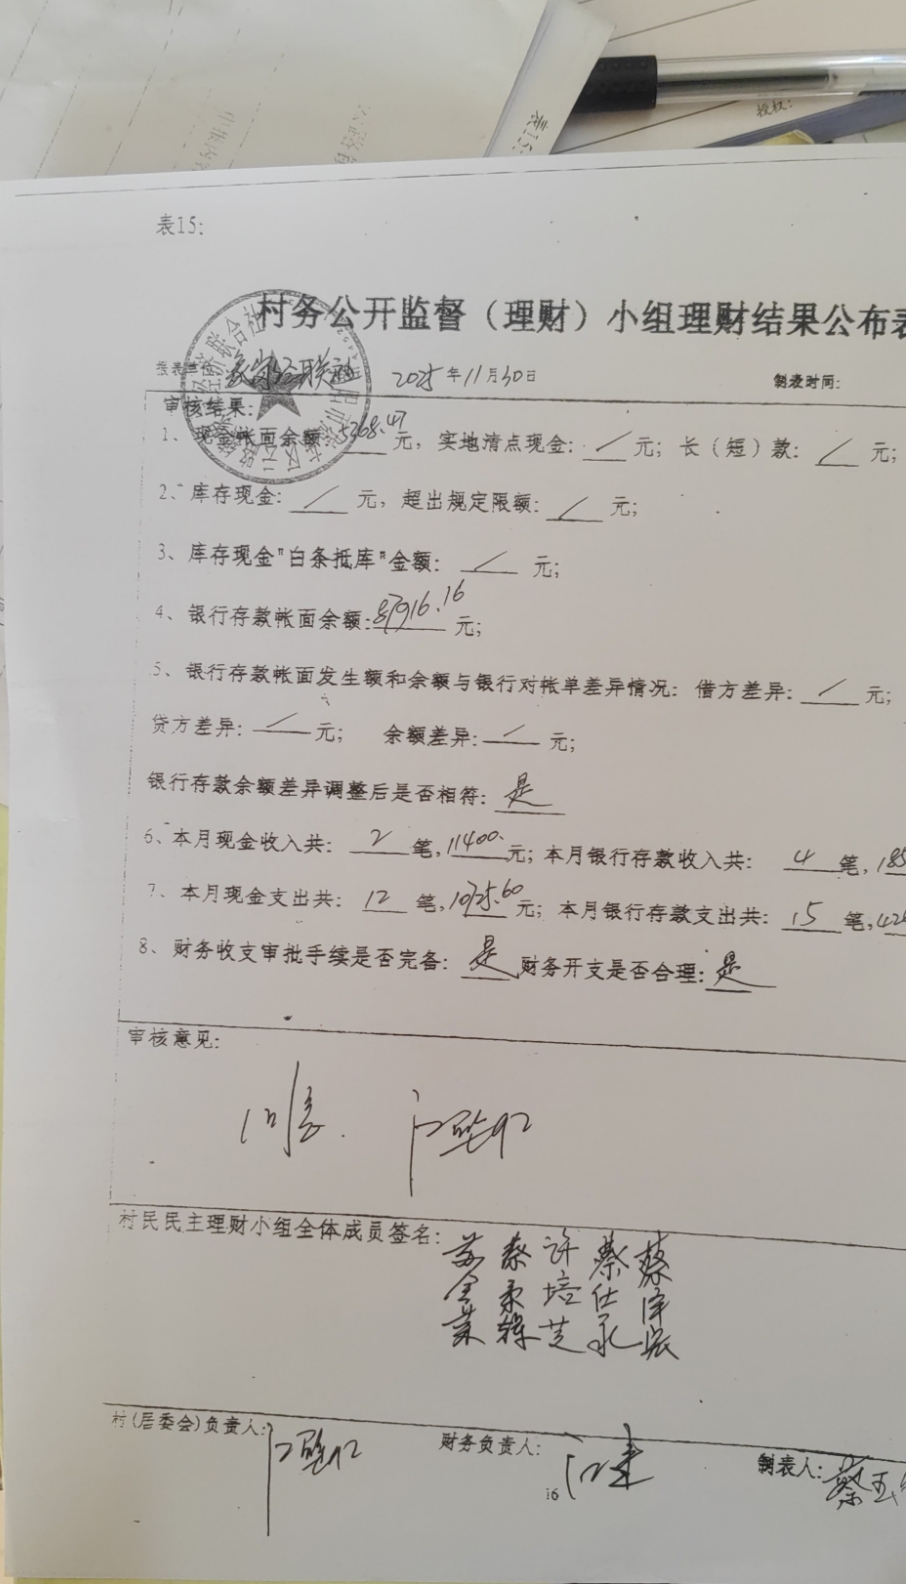 表15:
授权:
表15:
村务公开监督（理财）小组理财结果公布表
2025年11月30日 制表时间:
审核结果:
1、现金帐面余额: 5368.47元，实地清点现金: / 元; 长（短）款: / 元;
2、库存现金: / 元，超出规定限额: / 元;
3、库存现金"白条抵库"金额: / 元;
4、银行存款帐面余额: 87916.16元;
5、银行存款帐面发生额和余额与银行对帐单差异情况: 借方差异: / 元;
贷方差异: / 元; 余额差异: / 元;
银行存款余额差异调整后是否相符: 是
6、本月现金收入共: 2 笔, 11400. 元; 本月银行存款收入共: 4 笔, 185
7、本月现金支出共: 12 笔, 10725.60元; 本月银行存款支出共: 15 笔, 42
8、财务收支审批手续是否完备: 是 财务开支是否合理: 是
审核意见:
同意.
村民民主理财小组全体成员签名:
苏 蔡 许 蔡 蔡
金 柔 培 仕 泽
莱 辉 芝 永 宏
村(居委会)负责人: 财务负责人: 制表人: 蔡玉
16